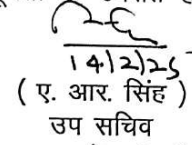 14/2/25
( ए. आर. सिंह )
उप सचिव